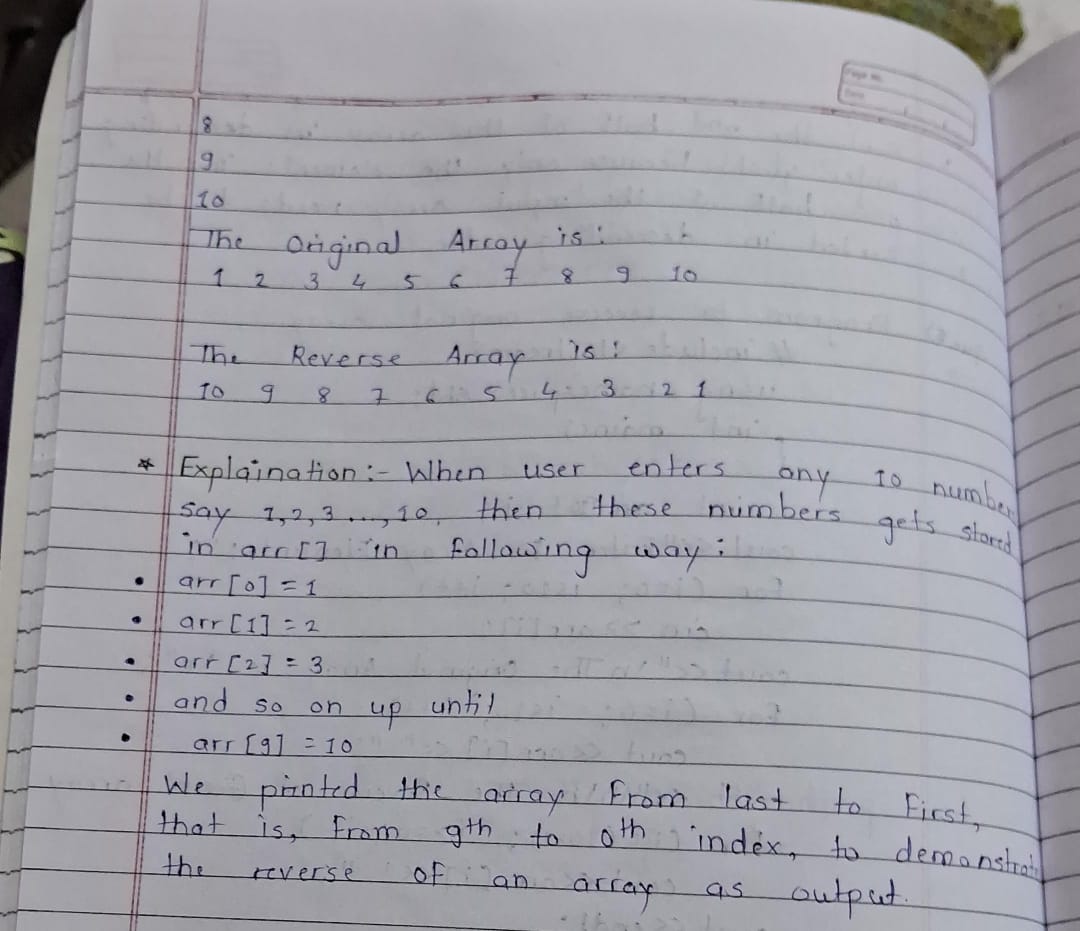 8
9
10
The Original Array is :
1 2 3 4 5 6 7 8 9 10
The Reverse Array is :
10 9 8 7 6 5 4 3 2 1
* Explaination :- When user enters any 10 number
say 1,2,3 ..., 10, then these numbers gets stored
in arr [] in following way :
• arr [0] = 1
• arr [1] = 2
• arr [2] = 3
• and so on up until
• arr [9] = 10
We printed the array from last to First,
that is, from 9th to 0th index, to demonstrat
the reverse of an array as output.